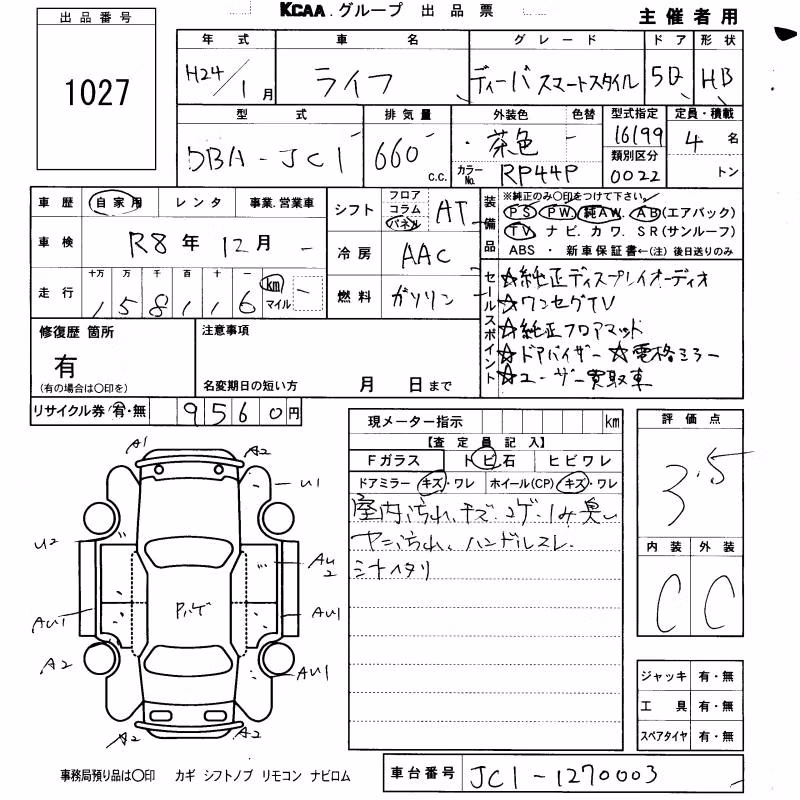 KCAA.グループ 出品票
主催者用
出品番号
1027
年式 車名 グレード ドア 形状
H24/1月 ライフ ディーバ スマートスタイル 5D HB
型式 排気量 外装色 色替 型式指定 定員・積載
DBA-JC1 660 c.c. 茶色 - 16199 4名
カラーNo. RP44P 類別区分 0022 トン
車歴 自家用 レンタ 事業.営業車
シフト フロア コラム パネル AT
車検 R8年12月 -
冷房 AAC
走行 十万 万 千 百 十 一 km マイル -
158116
燃料 ガソリン
装備品 ※純正のみ〇印をつけて下さい。
PS PW. 純AW. AB(エアバック)
TV ナビ. カワ. SR(サンルーフ)
ABS ・ 新車保証書←(注) 後日送りのみ
セールスポイント
☆純正ディスプレイオーディオ
☆ワンセグTV
☆純正フロアマット
☆ドアバイザー ☆電格ミラー
☆ユーザー買取車
修復歴 箇所
有
(有の場合は〇印を)
注意事項
名変期日の短い方 月 日まで
リサイクル券 有・無 9560円
現メーター指示 km
【査定員記入】
Fガラス トビ石 ヒビワレ
ドアミラー キズ・ワレ ホイール(CP) キズ・ワレ
室内汚れ、キズ、コゲ、しみ臭い
ヤニ汚れ、ハンドルスレ
シートヘタリ
評価点
3.5
内装 外装
C C
A1
A2
U1
U2
AU2
AU1
AU1
A2
AU1
A2
A2
ジャッキ 有・無
工具 有・無
スペアタイヤ 有・無
事務局預り品は〇印 カギ シフトノブ リモコン ナビロム
車台番号 JC1-1270003